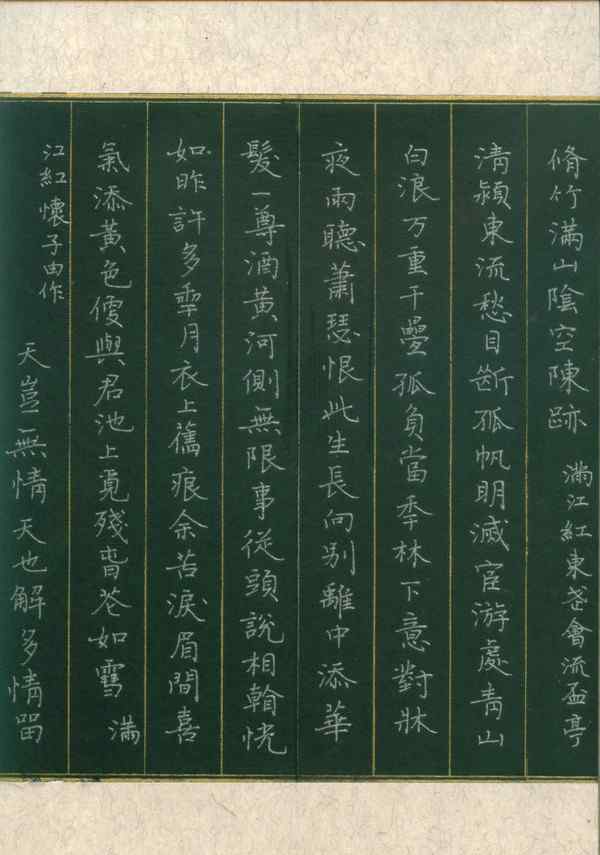 脩竹滿山陰空陳跡 滿江紅東武會流盃亭
清潁東流愁目斷孤帆明滅宦游處青山
白浪万重千疊孤負當年林下意對牀
夜雨聽蕭瑟恨此生長向別離中添華
髮一尊酒黃河側無限事從頭說相看恍
如昨許多年月衣上舊痕余苦淚眉間喜
氣添黃色便與君池上覓殘春花如雪 滿
江紅懷子由作
天豈無情天也解多情留